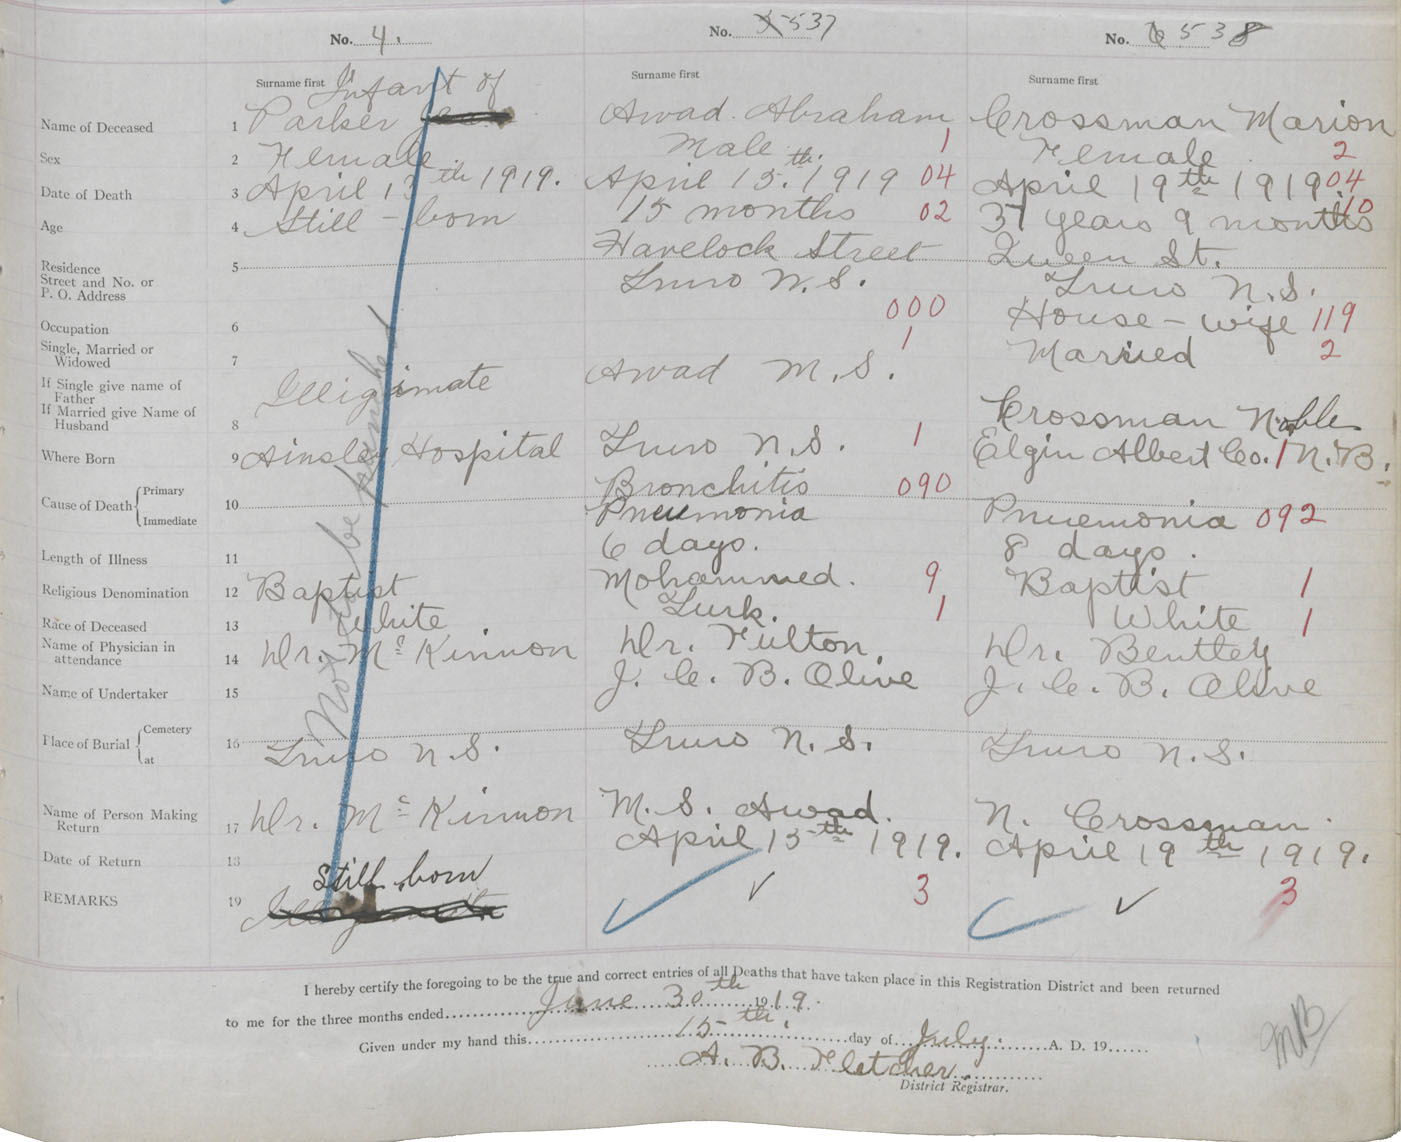 No. 4.
Surname first Infant of
Name of Deceased 1 Parker
Sex 2 Female
Date of Death 3 April 13th 1919.
Age 4 Still-born
Residence 5
Street and No. or
P. O. Address
Occupation 6
Single, Married or
Widowed 7
If Single give name of
Father Illigimate
If Married give Name of
Husband 8
Where Born 9 Ainsley Hospital
Cause of Death { Primary
Immediate 10
Length of Illness 11
Religious Denomination 12 Baptist
Race of Deceased 13 White
Name of Physician in
attendance 14 Dr. Mc Kinnon
Name of Undertaker 15
Place of Burial { Cemetery
at 16 Truro N.S.
Name of Person Making
Return 17 Dr. Mc Kinnon
Date of Return 18
Still born
REMARKS 19 Illigimate
Not to be
No. 537
Surname first
Awad. Abraham
Male 1
April 15.th 1919 04
15 months 02
Havelock Street
Truro N.S.
000
1
Awad M.S.
Truro N.S. 1
Bronchitis 090
Pnuemonia
6 days.
Mohammed. 9
Turk. 1
Dr. Fulton.
J. C. B. Olive
Truro N.S.
M. S. Awad.
April 15th 1919.
3
No. 6 538
Surname first
Crossman Marion
Female 2
April 19th 1919 04
37 years 9 months 10
Queen St.
Truro N.S.
House-wife 119
Married 2
Crossman Noble
Elgin Albert Co. 1 N.B.
Pnuemonia 092
8 days.
Baptist 1
White 1
Dr. Bentley
J. C. B. Olive
Truro N.S.
N. Crossman.
April 19th 1919.
3
I hereby certify the foregoing to be the true and correct entries of all Deaths that have taken place in this Registration District and been returned
to me for the three months ended June 30th 1919.
Given under my hand this 15th day of July. A. D. 19......
A. B. Fletcher.
District Registrar.
MB